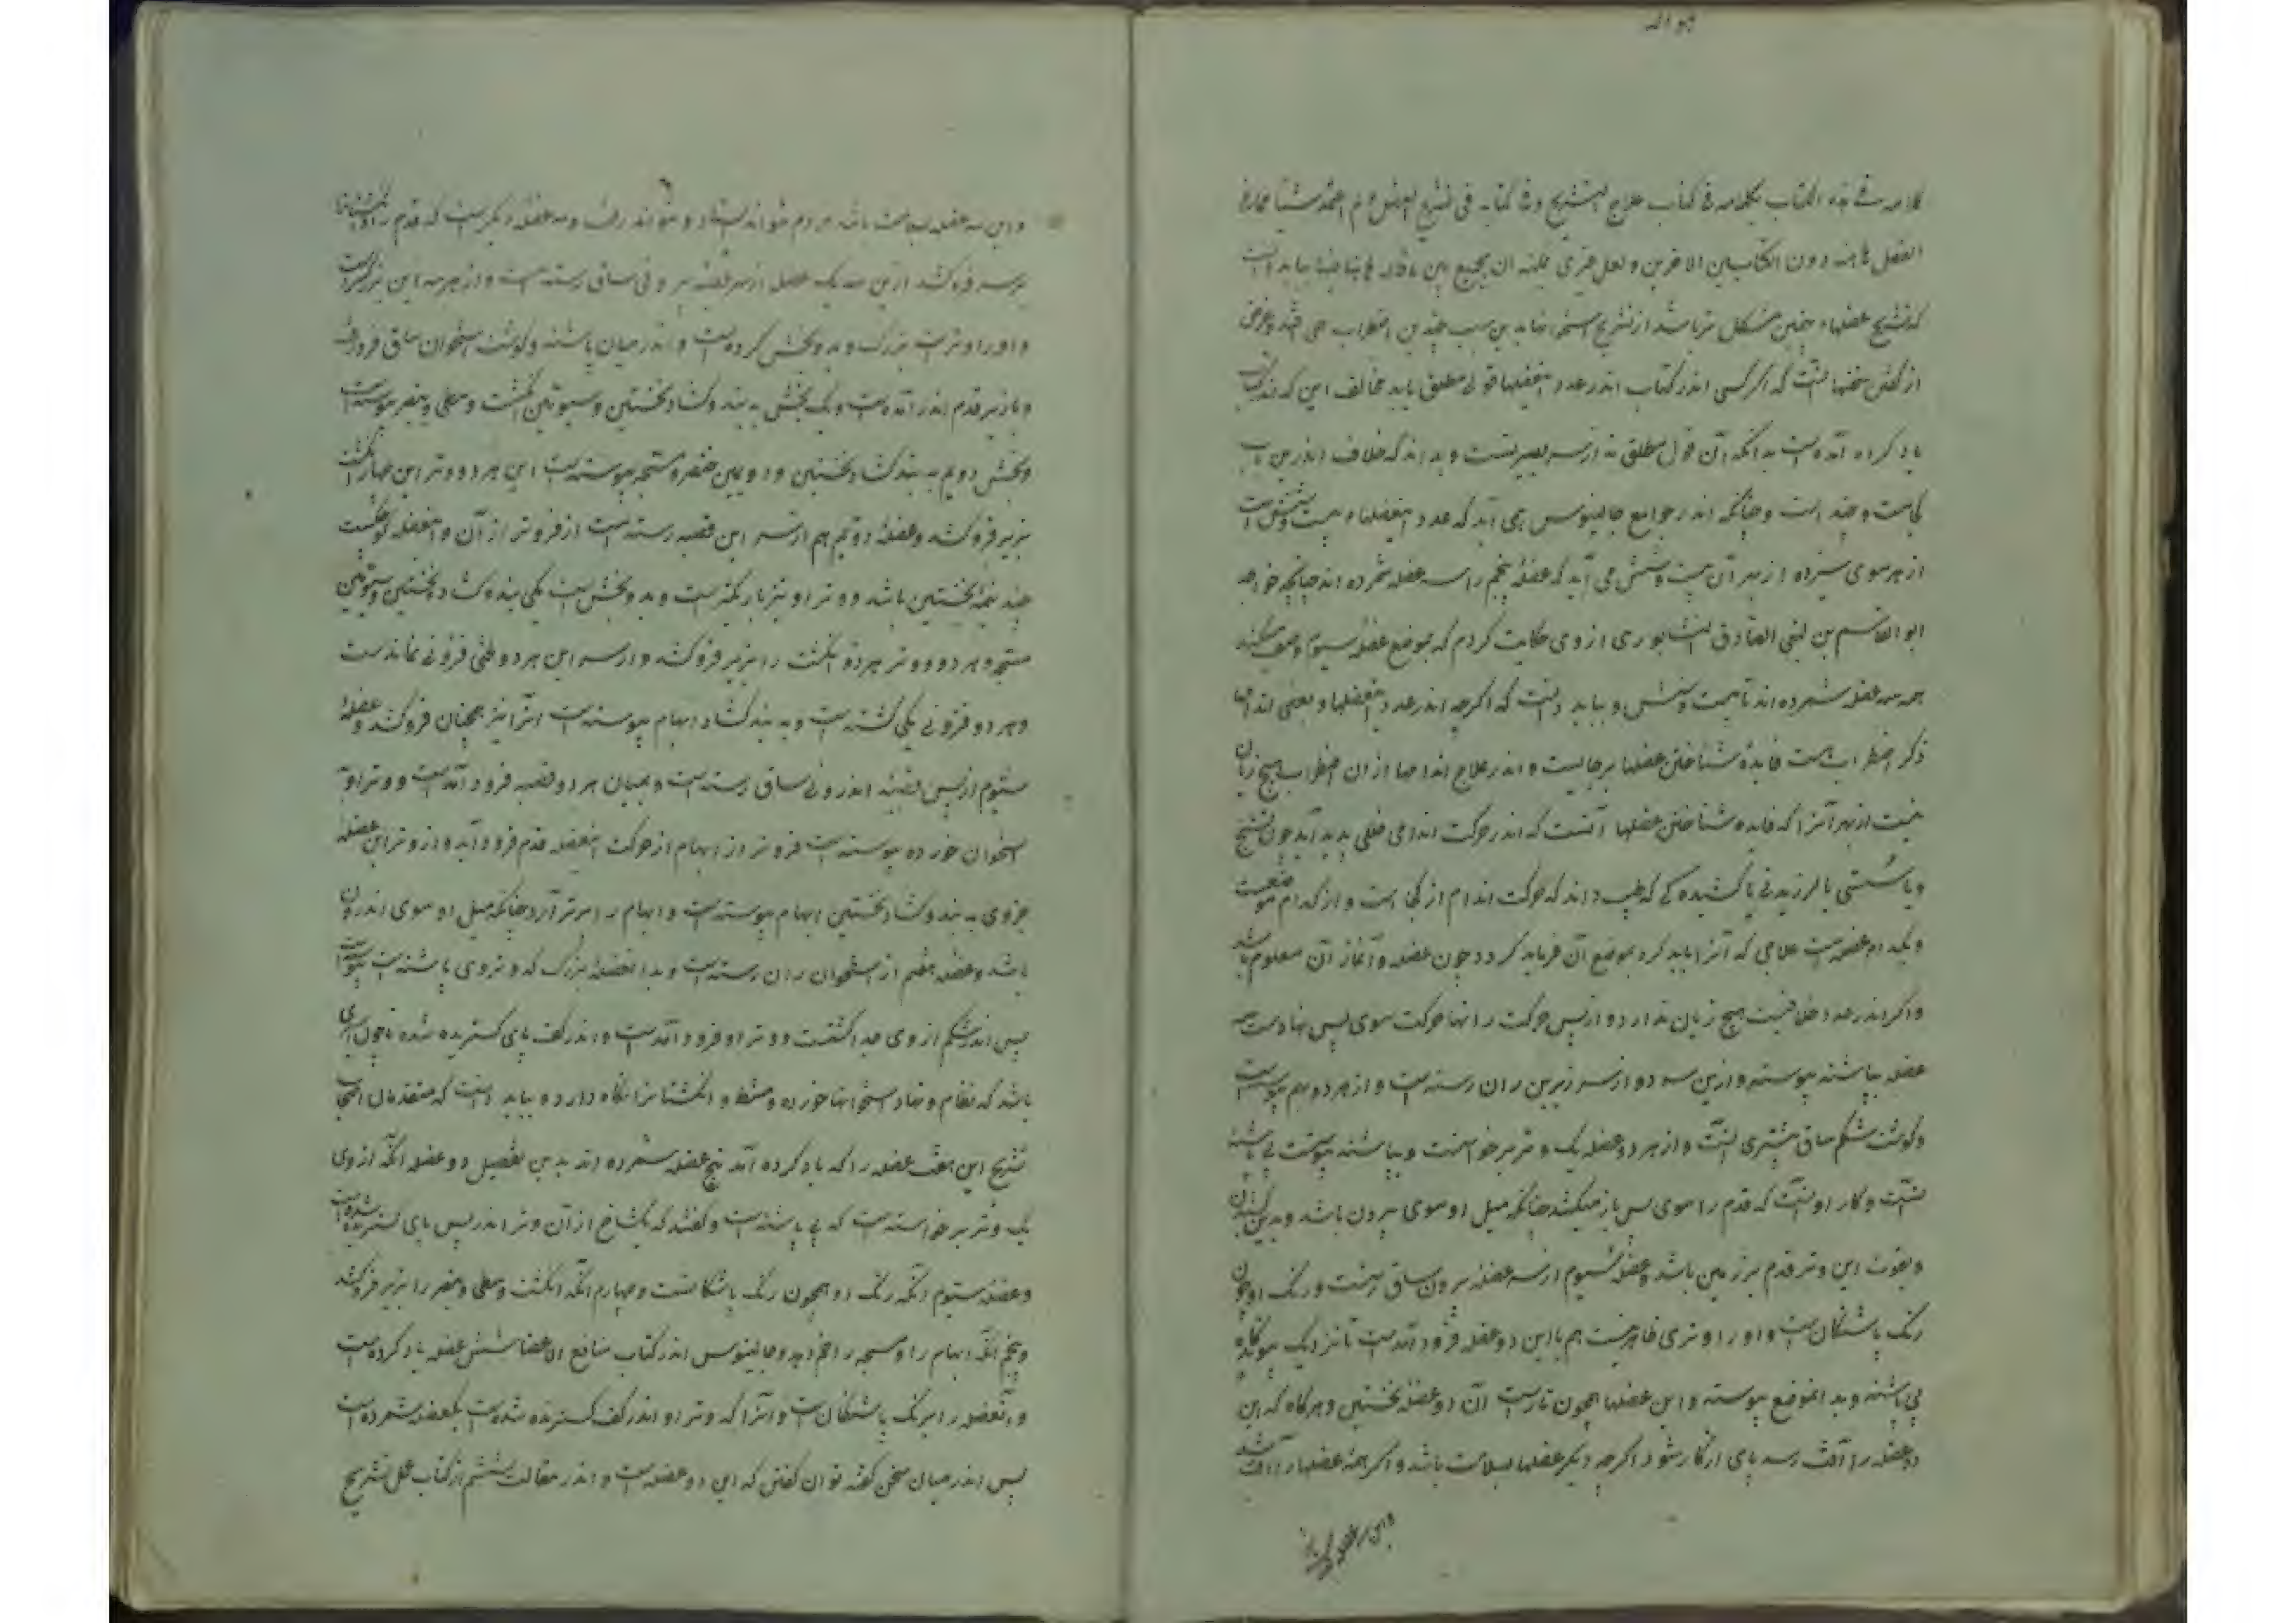 هو الله
کلامه فی هذه الکتاب بکلامه فی کتاب علاج التشریح و فی کتابه فی تشریح العضل و لم اعتمد شیئا مما فی
العضل هاهنا دون الکتابین الاخرین و لعل غیری یمکنه ان یجمع بین ما قال هاهنا بباید دانست
که تشریح عضلهاء چنین مشکل تر باشد از تشریح استخوانها بدین سبب چندین اضطراب همی افتد و غرض
از گفتن سخنها آنست که اگر کسی اندر کتاب اندر عدد عضلها قولی مطلق یابد مخالف این که اندر کتاب
یاد کرده آمده است بدانکه آن قول مطلق نه از سر بصیرتست و بداند که خلاف اندرین باب
کجاست و چند است و چنانکه اندر جوامع جالینوس همی آید که عدد عضلهاء بیست و شش است
از هر سوی سیزده از بهر آن بیست و شش می آید که عضله پنجم را سه عضله شمرده اند چنانچه خواجه
ابو القاسم بن ابی الصادق النشابوری از وی حکایت کردم که بموضع عضله سیوم وصف میکند
همه سه عضله شمرده اند تا بیست و شش و بباید دانست که اگرچه اندر عدد عضلها و بعضی اندامها
ذکر اضطراب است فایده شناختن عضلها برجایست و اندر علاج اندامها از آن اضطراب هیچ زیان
نیست از بهر آنرا که فایده شناختن عضلها آنست که اندر حرکت اندامی خللی پدید آید چون تشنج
و یا سستی یا لرزیدنی یا کشیدگی که طبیب داند که حرکت اندام از کجا است و از کدام موضعست
و بکدام عضله است علاجی که آنرا باید کرد بموضع آن فرماید کرد چون عضله و آغاز آن معلوم باشد
و اگر اندر عدد خلافیست هیچ زیان ندارد و از پس حرکت را انها حرکت سوی پس نهادست سه
عضله بپاشنه پیوسته و ازین سه دو از سر زیرین ران رسته است و از هر دو بهم پیوست
و گوشت شکم ساق بیشتری اینست و از هر دو عضله یک وتر برخواستست و بپاشنه پیوست پی پاشنه
اینست و کار او اینست که قدم را سوی پس باز میکشد چنانکه میل او سوی بیرون باشد و بدین کشیدن
و بقوت این وتر قدم بر زمین باشد و عضله سیوم از سر عضله بیرون ساق رستست و رنگ او چون
رنگ باشنگان است و او را وتری ظاهر نیست هم با این دو عضله فرود آمدست تا نزدیک پیوندگاه
پی پاشنه و بدانموضع پیوسته و این عضلها همچون تا رست آن دو عضله نخستین و هرگاه که این
دو عضله را آفت رسد پای از کار شود اگرچه دیگر عضلها بسلامت باشد و اگر همه عضلها را آفت باشد
و این سه عضله بسلامت باشد مردم تواند ایستاد و تواند رفت و سه عضله دیگر است که قدم را و انگشتانرا
بزیر فرو کشد ازین سه یک عضل از سر قصبه بیرونی ساق رسته است و از هر سه این بزرگتر است
و او را وتریست بزرگ و بدو بخش کرده است و اندر میان پاشنه و گوشت استخوان ساق فرو رفته
و بازیر قدم اندر آمده است و یک بخش به بند گشاد نخستین و سیومین انگشت وسطی و بنصر پیوسته است
و بخش دویم به بند گشاد نخستین و دویمین خنصر و مسبحه پیوسته است این هر دو وتر این چهار انگشت
بزیر فرو کشد و عضله دویم هم از سر این قصبه رسته است از فروتر از آن و عضله کوچکست
چند نیمه نخستین باشد و وتر او نیز باریکتر است و بدو بخش است یکی ببند گشاد نخستین و سیومین
مسبحه و هر دو وتر هر دو انگشت را بزیر فرو کشد و از سر این هر دو طنی فزونی نماندست
و هر دو فزونی یکی گشته است و به بند گشاد ابهام پیوسته است آنرا نیز همچنان فرو کشد و عضله
سیوم از پس قصبه اندرونی ساق رسته است و بمیان هر دو قصبه فرود آمدست و وتر او
استخوان خورده پیوسته است فروتر از ابهام از حرکت عضله قدم فرود آید و از وتر این عضله
جزوی به بند گشاد نخستین ابهام پیوسته است و ابهام را برتر آرد چنانکه میل او سوی اندرون
باشد و عضله هفتم از استخوان ران رسته است و بدانعضله بزرگ که وتر وی پاشنه است پیوسته است
پس اندر شکم از وی جدا گشتست و وتر او فرود آمدست و اندر کف پای گستریده شده تا چون
باشد که نظام و نهاد استخوانها خورده و مشط و انگشتانرا نگاه دارد و بباید دانست که متقدمان اصحاب
تشریح این هفت عضله را که یاد کرده آمد پنج عضله شمرده اند بدین تفصیل دو عضله آنکه از وی
یک وتر برخواسته است که پی پاشنه است و گفتند که یکشاخ از آن وتر اندر پس پای گستریده شده است
و عضله سیوم آنکه رنگ او همچون رنگ باشنگانست و چهارم آنکه انگشت وسطی و بنصر را بزیر فرو کشد
و پنجم آنکه ابهام را و مسبحه را خم دهد و جالینوس اندر کتاب منافع الاعضا شش عضله یاد کرده است
و آنعضله را برنگ باشنگان است و آنرا که وتر او اندر کف گسترده شده است یکعضله شمرده است
پس اندر میان سخن گفته توان گفتن که این دو عضله است و اندر مقالت ششم از کتاب عمل تشریح